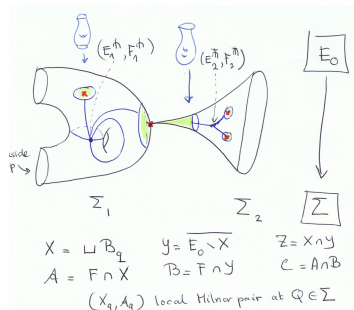 (E₁^ħ, F₁^ħ)
(E₂^ħ, F₂^ħ)
E₀
Σ₁
Σ₂
Σ
X = ⊔ B_q
Y = \overline{E₀ ∖ X}
Z = X ∩ Y
A = F ∩ X
B = F ∩ Y
C = A ∩ B
(X_q, A_q) local Milnor pair at Q ∈ Σ